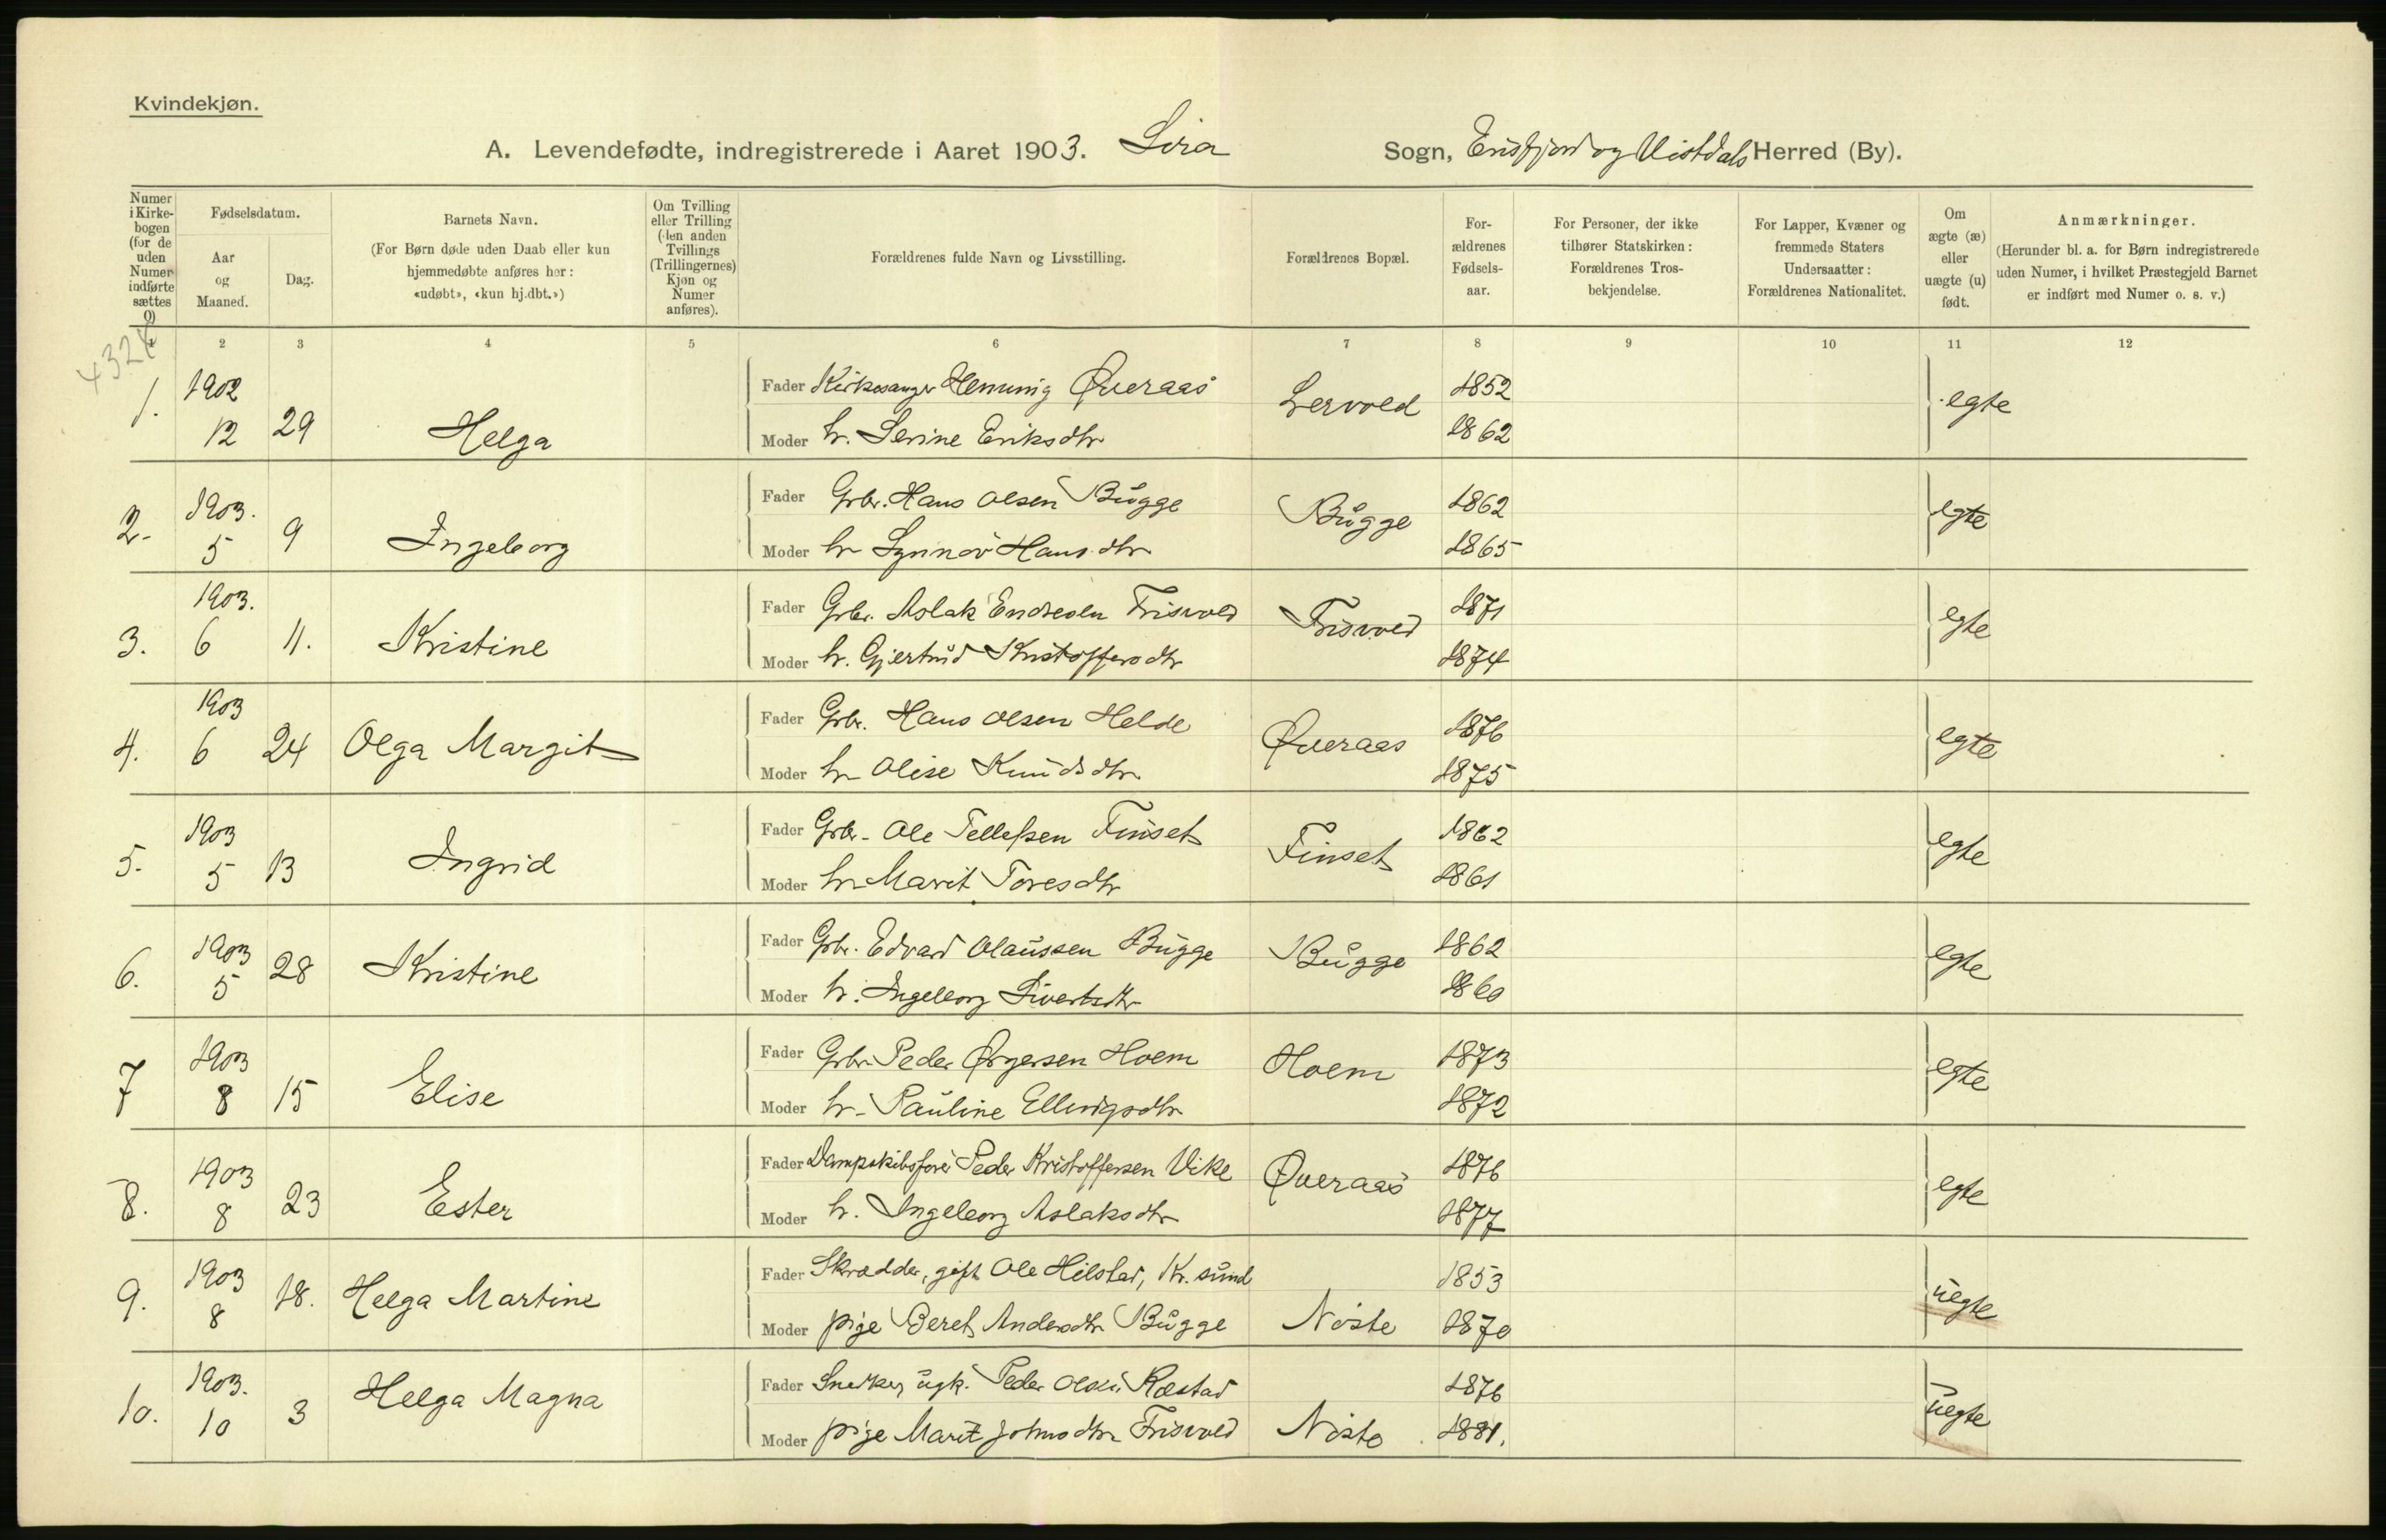 Kvindekjøn.
A. Levendefødte, indregistrerede i Aaret 1903. Sira Sogn, Erisfjord og Vistdals Herred (By).
Numer i Kirke-bogen (for de uden Numer indførte sættes 0)
Fødselsdatum.
Aar og Maaned.
Dag.
Barnets Navn.
(For Børn døde uden Daab eller kun hjemmedøbte anføres her: «udøbt», «kun hj.dbt.»)
Om Tvilling eller Trilling (den anden Tvillings (Trillingernes) Kjøn og Numer anføres).
Forældrenes fulde Navn og Livsstilling.
Forældrenes Bopæl.
For-ældrenes Fødsels-aar.
For Personer, der ikke tilhører Statskirken: Forældrenes Tros-bekjendelse.
For Lapper, Kvæner og fremmede Staters Undersaatter: Forældrenes Nationalitet.
Om ægte (æ) eller uægte (u) født.
Anmærkninger.
(Herunder bl. a. for Børn indregistrerede uden Numer, i hvilket Præstegjeld Barnet er indført med Numer o. s. v.)
1 2 3 4 5 6 7 8 9 10 11 12
1. 1902 12 29 Helga
Fader Kirkesanger Henning Øveraas Lervold 1852 egte
Moder h. Serine Eriksdtr 1862
2. 1903. 5 9 Ingeborg
Fader Grbr. Hans Olsen Bugge Bugge 1862 egte
Moder h. Synnøv Hansdtr 1865
3. 1903. 6 11. Kristine
Fader Grbr. Aslak Endresen Frisvold Frisvold 1871 egte
Moder h. Gjertrud Kristoffersdtr 1874
4. 1903 6 24 Olga Margit
Fader Grbr. Hans Olsen Helde Øveraas 1876 egte
Moder h. Olise Knudsdtr 1875
5. 1903 5 13 Ingrid
Fader Grbr. Ole Tellefsen Finset Finset 1862 egte
Moder h. Marit Toresdtr 1861
6. 1903 5 28 Kristine
Fader Grbr. Edvard Olaussen Bugge Bugge 1862 egte
Moder h. Ingeborg Sivertsdtr 1860
7 1903 8 15 Elise
Fader Grbr. Peder Ørgersen Hoem Hoem 1873 egte
Moder h. Pauline Ellingsdtr 1872
8. 1903 8 23 Ester
Fader Dampskibsfører Peder Kristoffersen Vike Øveraas 1876 egte
Moder h. Ingeborg Aslaksdtr 1877
9. 1903 8 18. Helga Martine
Fader Skrædder, gift Ole Hilstad, Kr. sund 1853 uegte
Moder pige Beret Andersdtr Bugge Nøste 1870
10. 1903. 10 3 Helga Magna
Fader Snedker, ugk. Peder Olsen Røstad 1876 uegte
Moder pige Marit Johnsdtr Frisvold Nøste 1881.